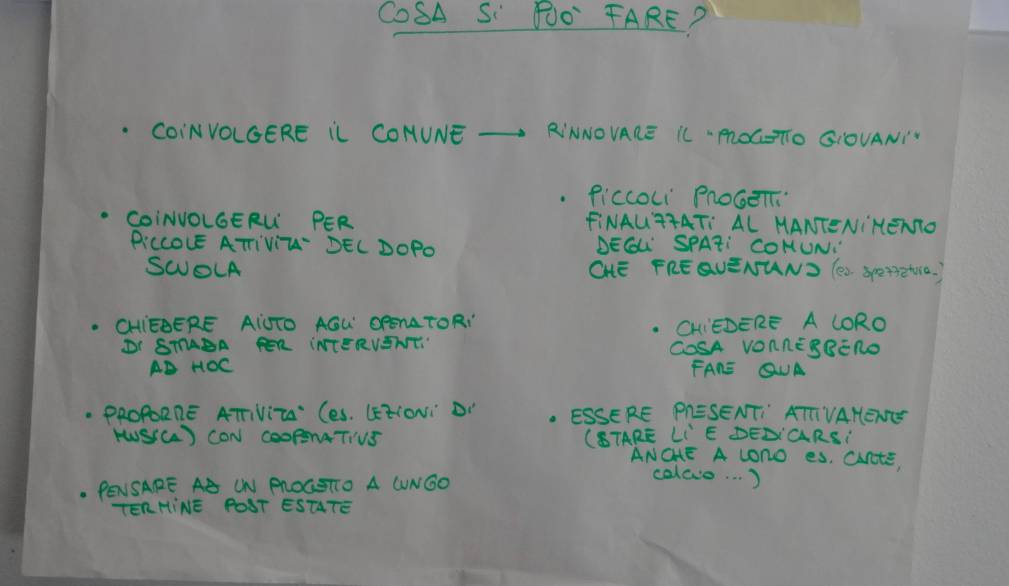 COSA Si PUÒ FARE?
• COINVOLGERE IL COMUNE → RINNOVARE IL "PROGETTO GIOVANI"
• COINVOLGERLI PER
PICCOLE ATTIVITA' DEL DOPO
SCUOLA
• CHIEDERE AIUTO AGLI OPERATORI
DI STRADA PER INTERVENTI
AD HOC
• PROPORRE ATTIVITA' (es. LEZIONI DI
MUSICA) CON COOPERATIVE
• PENSARE AD UN PROGETTO A LUNGO
TERMINE POST ESTATE
• PICCOLI PROGETTI
FINALIZZATI AL MANTENIMENTO
DEGLI SPAZI COMUNI
CHE FREQUENTANO (es. spazzatura..)
• CHIEDERE A LORO
COSA VORREBBERO
FARE QUA
• ESSERE PRESENTI ATTIVAMENTE
(STARE LI E DEDICARSI
ANCHE A LORO es. CARTE,
calcio ...)